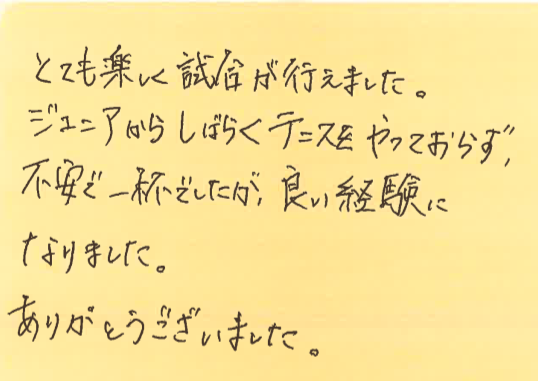 とても楽しく試合が行えました。
ジュニアからしばらくテニスをやっておらず、
不安で一杯でしたが、良い経験に
なりました。
ありがとうございました。